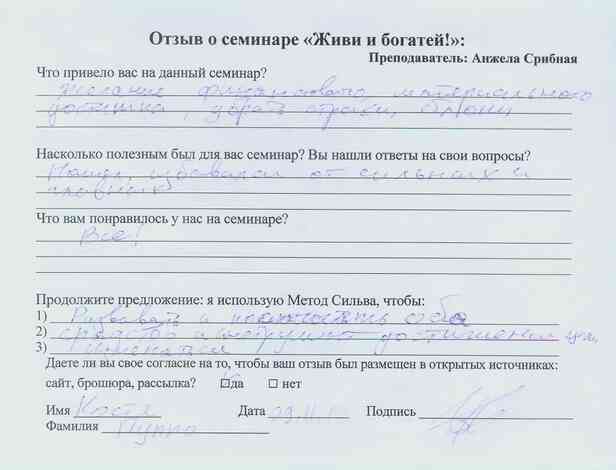 Отзыв о семинаре «Живи и богатей!»:
Преподаватель: Анжела Срибная
Что привело вас на данный семинар?
желание финансового, материального
достатка, убрать страхи, блоки
Насколько полезным был для вас семинар? Вы нашли ответы на свои вопросы?
от сильных и
Что вам понравилось у нас на семинаре?
Все!
Продолжите предложение: я использую Метод Сильва, чтобы:
1) Развивать и себя
2) достижения цели
3)
Даете ли вы свое согласие на то, чтобы ваш отзыв был размещен в открытых источниках:
сайт, брошюра, рассылка? да нет
Имя Костя Дата 09.11 Подпись
Фамилия